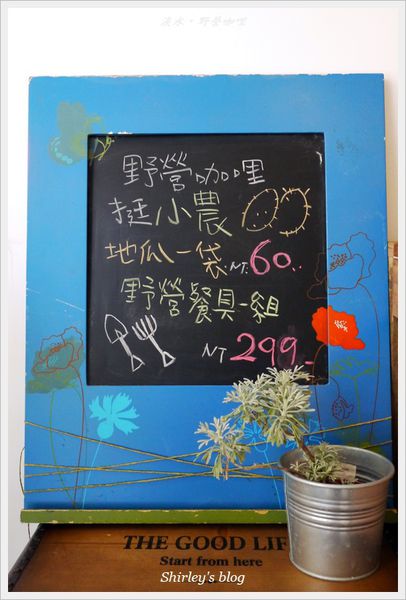 淡水‧野營咖哩
野營咖哩
挺小農
地瓜一袋NT.60.
野營餐具一組
NT 299.
THE GOOD LIF
Start from here
Shirley's blog